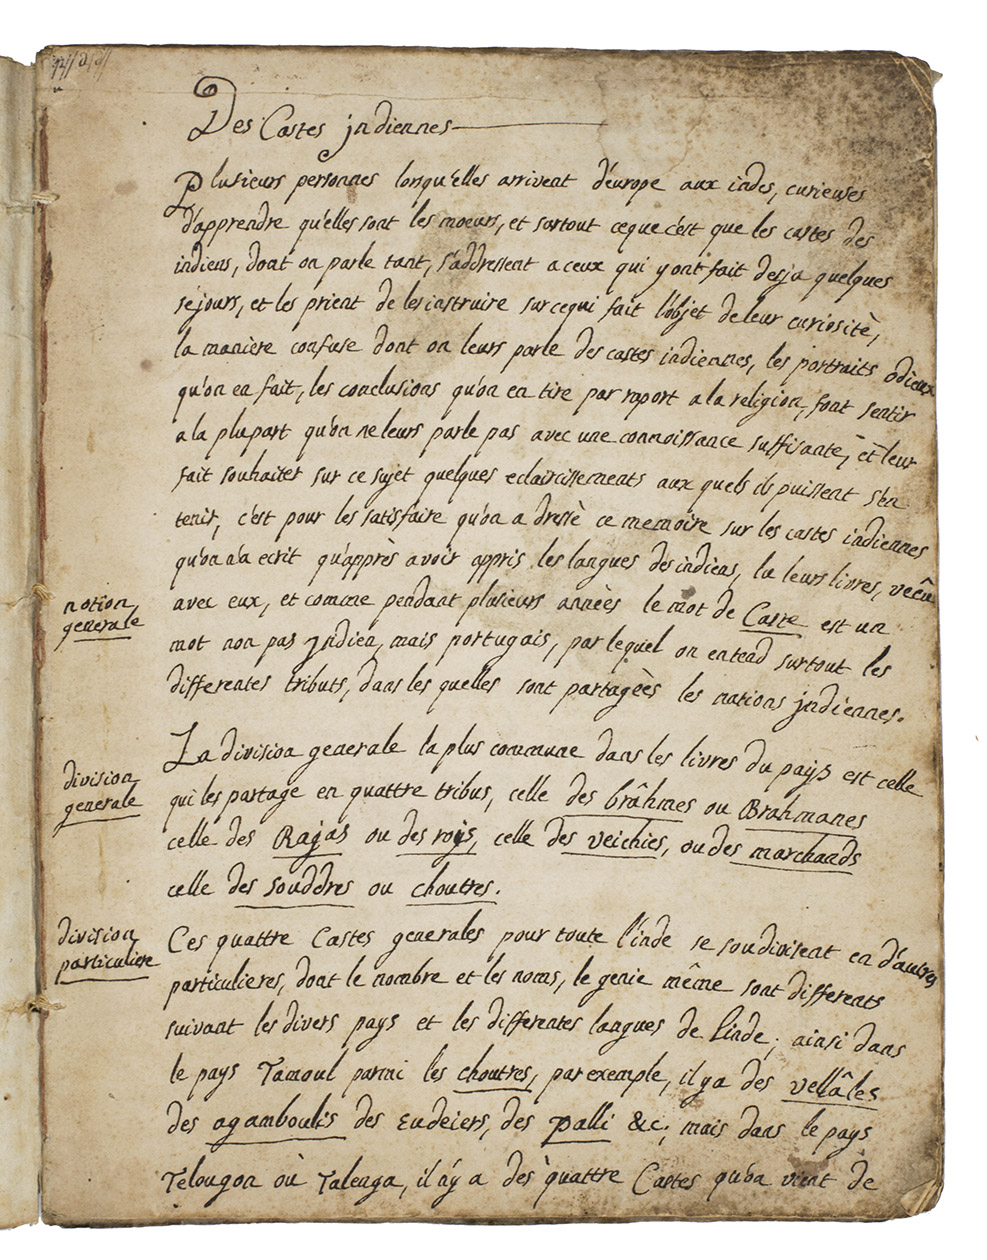 Des Castes jndiennes
Plusieurs personnes lorsqu'elles arrivent d'europe aux indes, curieuses
d'apprendre qu'elles sont les moeurs, et surtout ceque c'est que les castes des
indiens, dont on parle tant, s'addressent a ceux qui y ont fait desja quelques
séjours, et les prient de les instruire sur cequi fait l'objet de leur curiositè,
la manière confuse dont on leurs parle des castes indiennes, les portraits odieux
qu'on en fait, les conclusions qu'on en tire par raport a la religion, font sentir
a la plupart qu'on ne leurs parle pas avec une connoissance suffisante, et leur
fait souhaiter sur ce sujet quelques eclaircissements aux quels ils puissent s'en
tenir, c'est pour les satisfaire qu'on a dressè ce memoire sur les castes indiennes
qu'on n'a ecrit qu'apprès avoir appris les langues des indiens, lu leurs livres, vêcu
notion
generale
avec eux, et comme pendant plusieurs annèes le mot de Caste est un
mot non pas Jndien, mais portugais, par lequel on entend surtout les
differentes tributs, dans les quelles sont partagèes les nations jndiennes.
division
generale
La division generale la plus commune dans les livres du païs est celle
qui les partage en quattre tribus, celle des brâhmes ou Brahmanes
celle des Rajas ou des rois, celle des veichies, ou des marchands
celle des souddres ou choutres.
division
particuliere
Ces quattre Castes generales pour toute l'inde se soudivisent en d'autres
particulieres, dont le nombre et les noms, le genie même sont differents
suivant les divers pays et les differentes langues de l'inde; ainsi dans
le pays Tamoul parmi les choutres, par exemple, il y a des vellâles
des agamboulis des Eudeiers, des palli &c; mais dans le pays
Telougon où Talenga, il n'y a des quattre Castes qu'on vient de